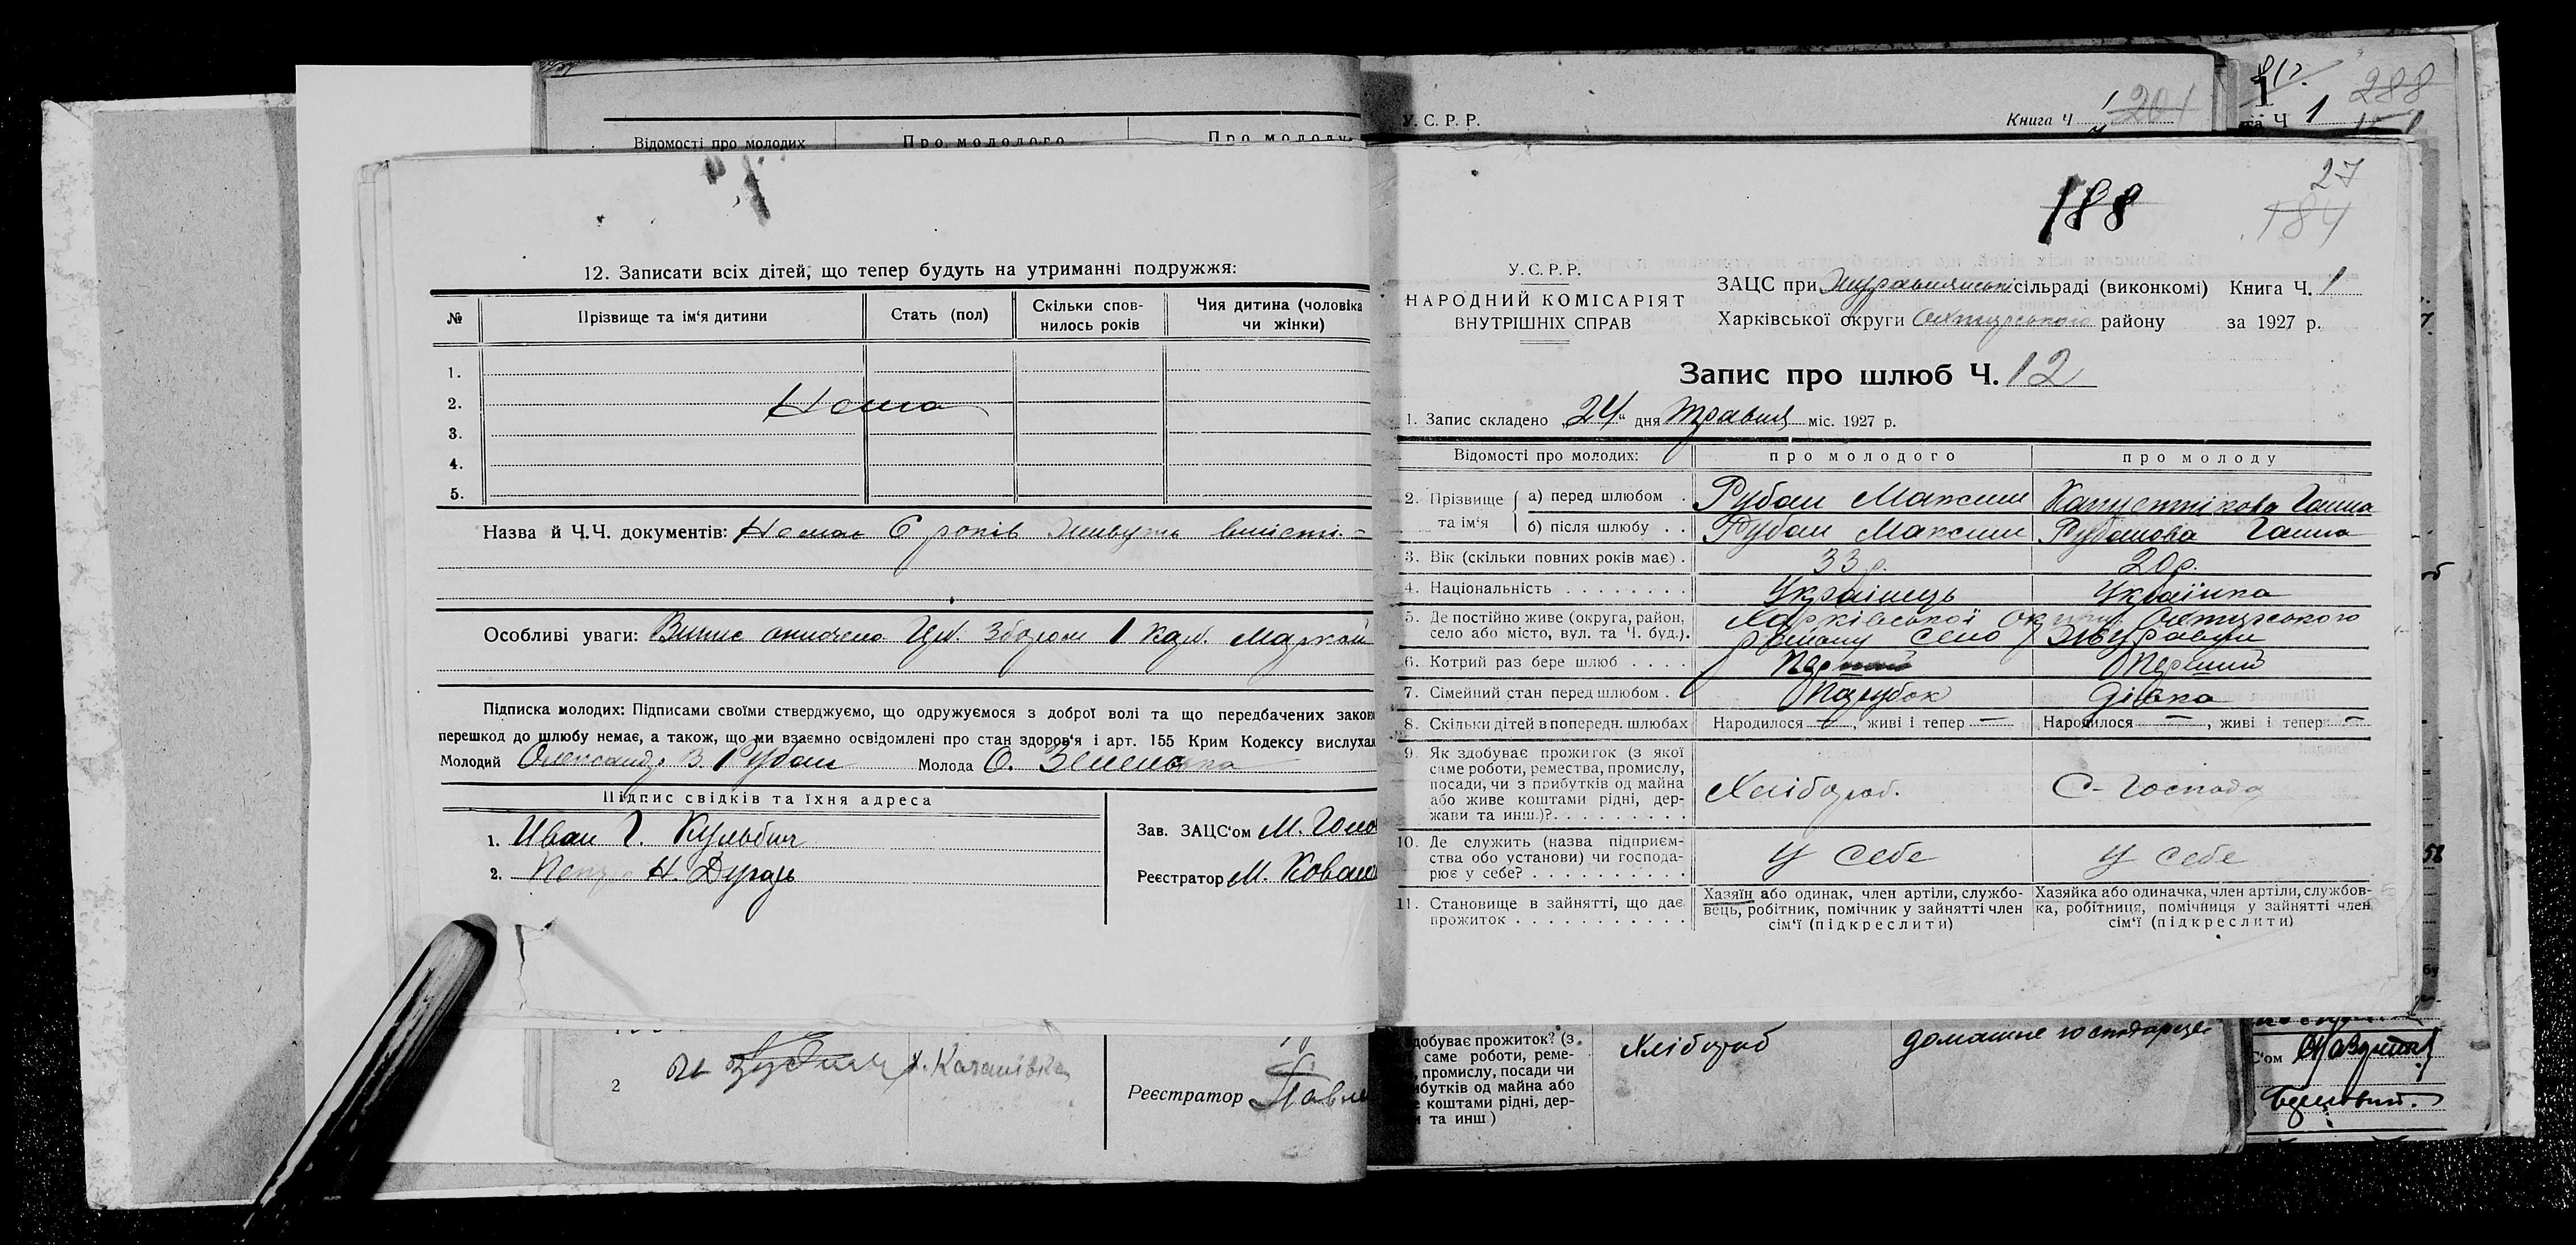 Відомості про молодих
Про молодого
Про молоду
12. Записати всіх дітей, що тепер будуть на утриманні подружжя:
№ Прізвище та ім'я дитини Стать (пол) Скільки спов-
нилось років
Чия дитина (чоловіка
чи жінки)
1.
2. Нема
3.
4.
5.
Назва й Ч.Ч. документів: Немає 6 років живуть вмісті. -
Особливі уваги: Випис
Підписка молодих: Підписами своїми стверджуємо, що одружуємося з доброї волі та що передбачених закон
перешкод до шлюбу немає, а також, що ми взаємно освідомлені про стан здоров'я і арт. 155 Крим Кодексу вислухал
Молодий Олександр В. Рубан Молода О.
Підпис свідків та їхня адреса
1. Иван Г. Кульбич
2. Н. Дураць
Зав. ЗАЦС'ом М. Голо
Реєстратор М. Ковал
2 х. Качанівка
Реєстратор Павле
У. С. Р. Р.
Книга Ч 1 201
288
Ч 1
27
188
184
У. С. Р. Р.
НАРОДНИЙ КОМІСАРІЯТ
ВНУТРІШНІХ СПРАВ
ЗАЦС при Журавнянській сільраді (виконкомі) Книга Ч. 1
Харківської округи Охтирського району за 1927 р.
Запис про шлюб Ч. 12
1. Запис складено „24" дня травня міс. 1927 р.
Відомості про молодих: про молодого про молоду
2. Прізвище та ім'я
а) перед шлюбом . Рубан Максим Капустнікова Ганна
б) після шлюбу . . Рубан Максим Рубанова Ганна
3. Вік (скільки повних років має) . 33 р. 20 р.
4. Національність . . . . . . . . Українець Українка
5. Де постійно живе (округа, район,
село або місто, вул. та Ч. буд.).
Харківської округи Охтирського
району село Журавне
6. Котрий раз бере шлюб . . . . Перший Перший
7. Сімейний стан перед шлюбом . Парубок Дівка
8. Скільки дітей в попередн. шлюбах Народилося —, живі і тепер — Народилося —, живі і тепер —
9. Як здобуває прожиток (з якої
саме роботи, ремества, промислу,
посади, чи з прибутків од майна
або живе коштами рідні, дер-
жави та инш.)?. . . . . . . . .
Хлібороб. С-Господа
10. Де служить (назва підприєм-
ства обо установи) чи господа-
рює у себе? . . . . . . . . . .
У себе У себе
11. Становище в зайнятті, що дає
прожиток . . . . . . . . . . .
Хазяїн або одинак, член артіли, службо-
вець, робітник, помічник у зайнятті член
сім'ї (підкреслити)
Хазяйка або одиначка, член артіли, службов-
ка, робітниця, помічниця у зайнятті член
сім'ї (підкреслити)
добуває прожиток? (з
саме роботи, реме-
, промислу, посади чи
ибутків од майна або
е коштами рідні, дер-
и та инш)
Хлібороб домашнє господарце
С'ом
58